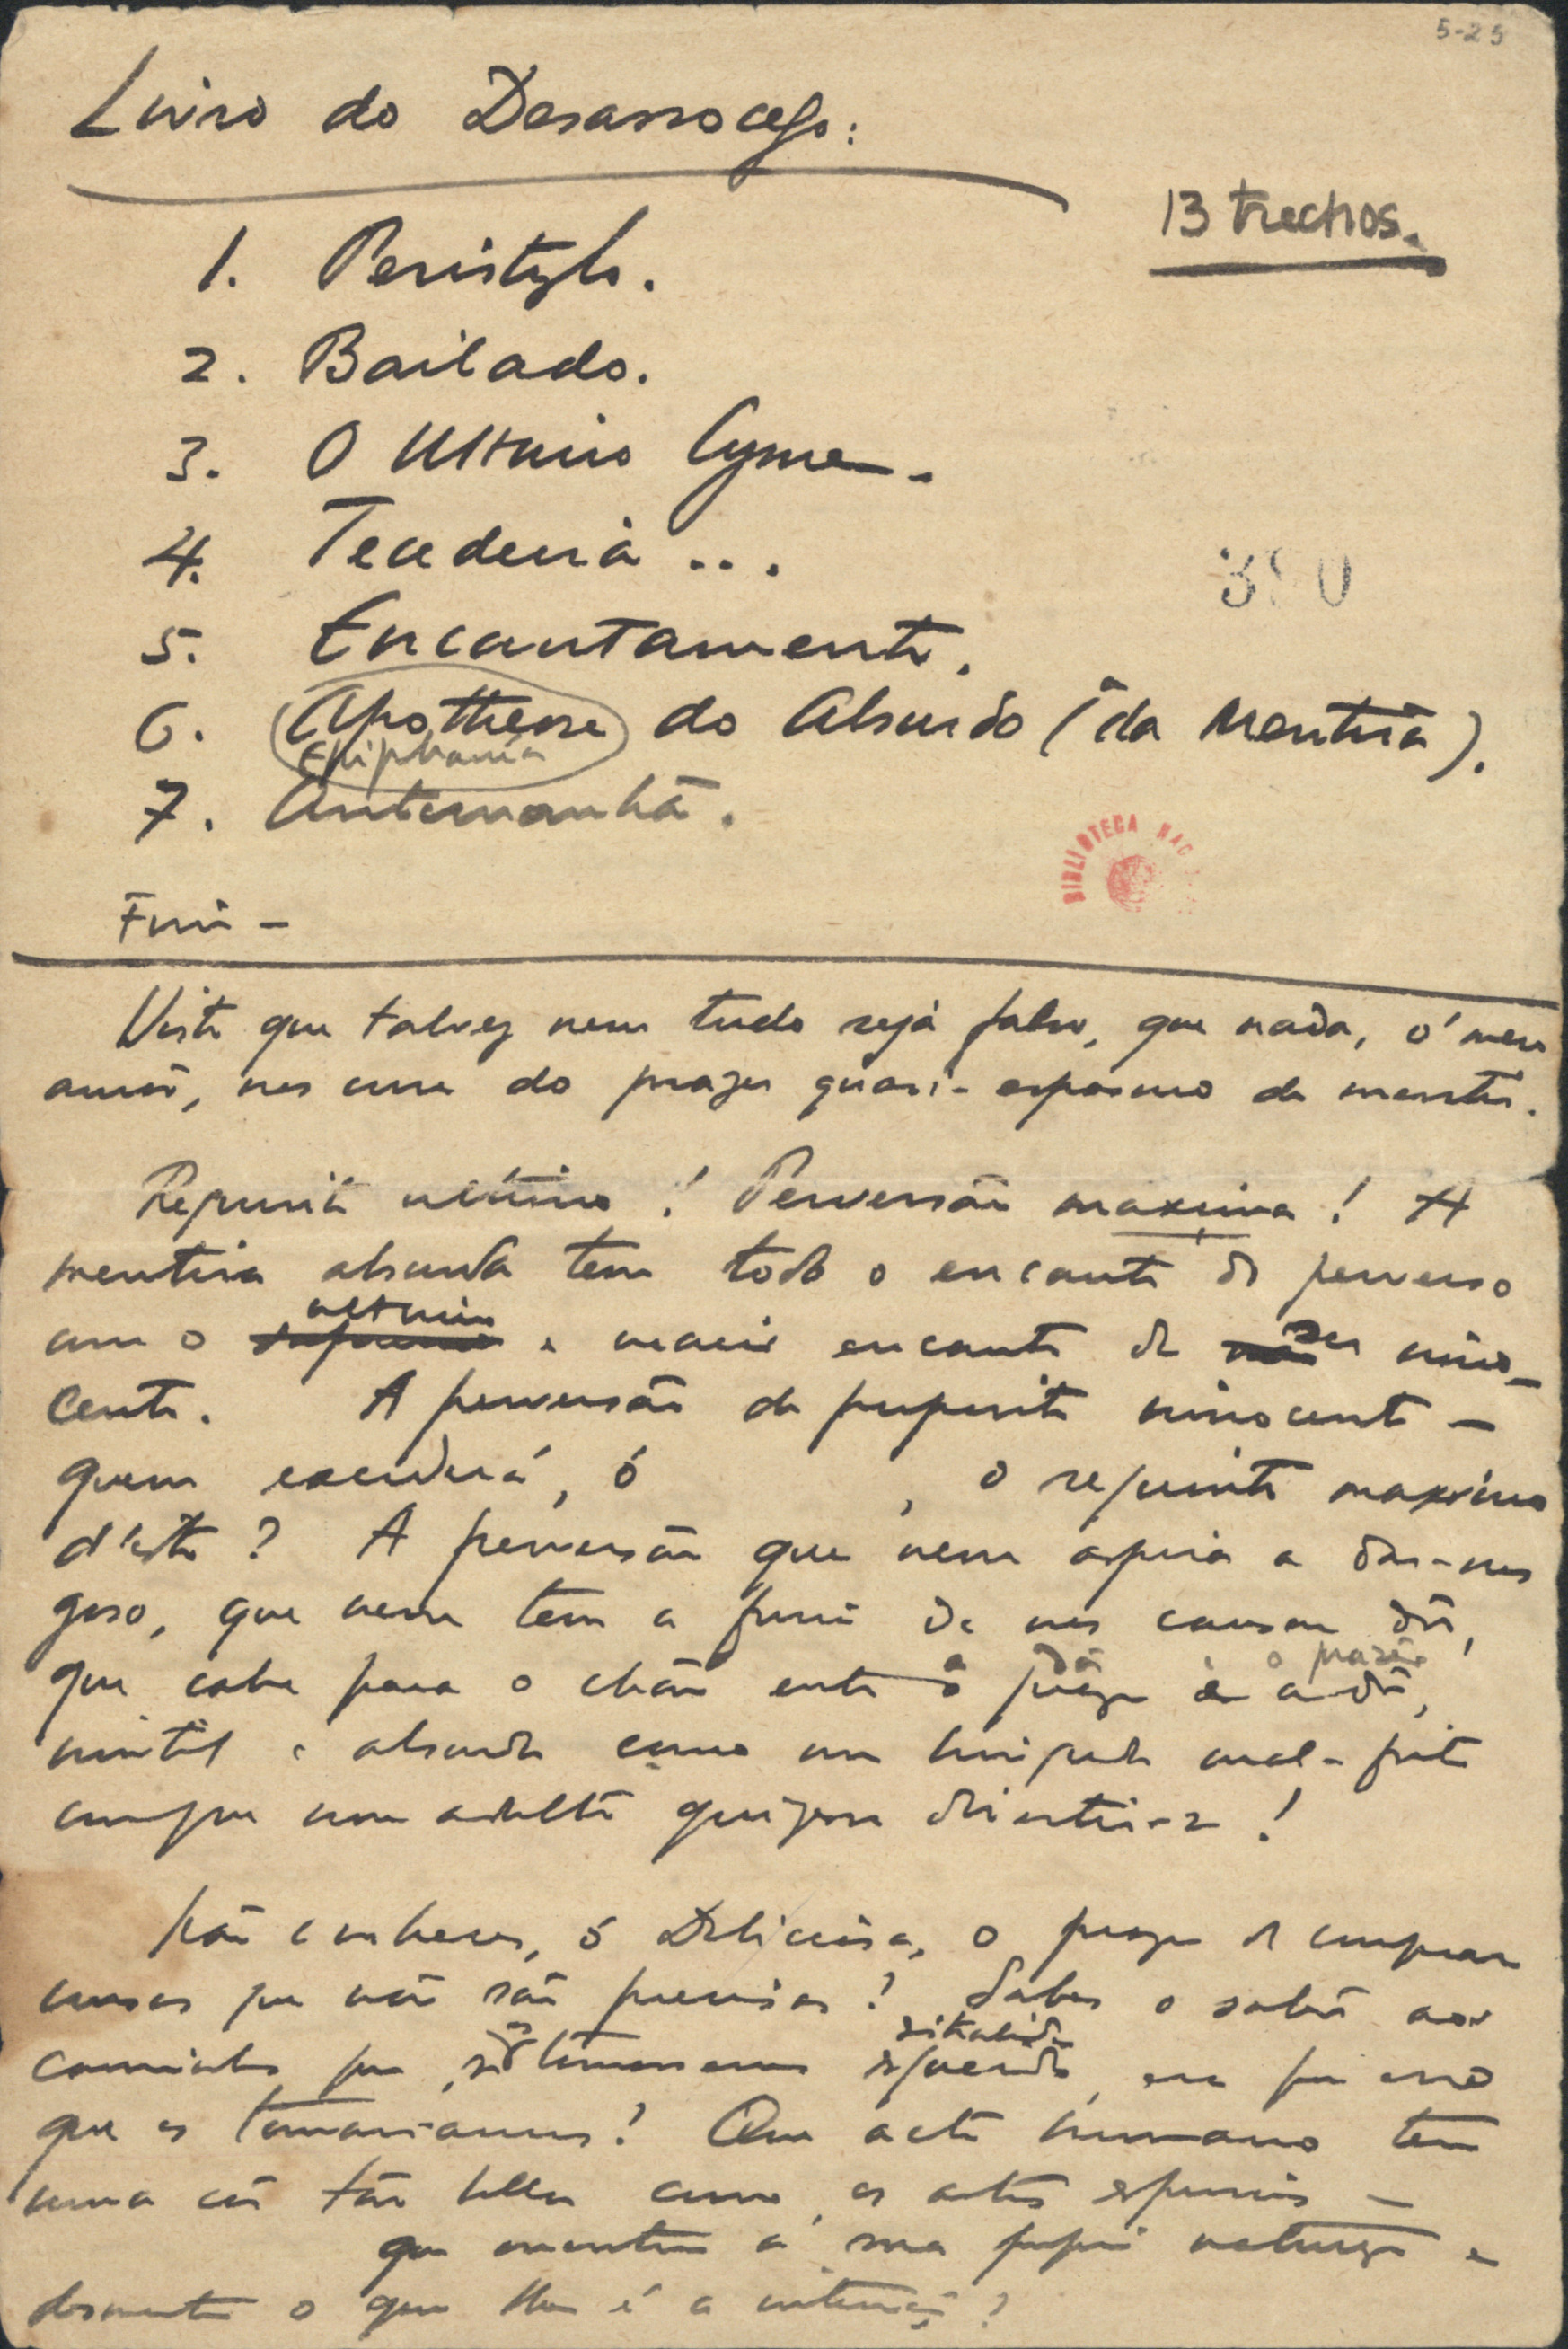 5-25
Livro do Desassocego:
13 trechos.
1. Peristylo.
2. Bailado.
3. O Ultimo Cysne.
4. Tecedeira...
5. Encantamento.
6. Apotheose do Absurdo (da Mentira).
Epiphania
7. Antemanhã.
390
BIBLIOTECA NAC
Fim —
Visto que talvez nem tudo seja falso, que nada, ó meu
amôr, nos cure do prazer quasi-espasmo de mentir.
Requinte ultimo! Perversão maxima! A
mentira absurda tem todo o encanto do perverso
ultimo
com o supremo e maior encanto de ser inno-
cente. A perversão de proposito innocente —
quem excederá, ó , o requinte maximo
d'isto? A perversão que nem aspira a dar-nos
goso, que nem tem a furia de nos causar dôr,
a dôr o prazer
que cahe para o chão entre o prazer e a dôr,
inutil e absurda como um brinquedo mal-feito
com que um adulto quizesse divertir-se!
Não conheces, ó Deliciosa, o prazer de comprar
cousas que não são precisas? Sabes o sabôr aos
caminhos que, se os tomassemos esquecidos, era por erro
que os tomariamos? Que acto humano tem
uma côr tão bella como os actos espurios —
que mentem á sua propria natureza e
desmentem o que lhes é a intenção?